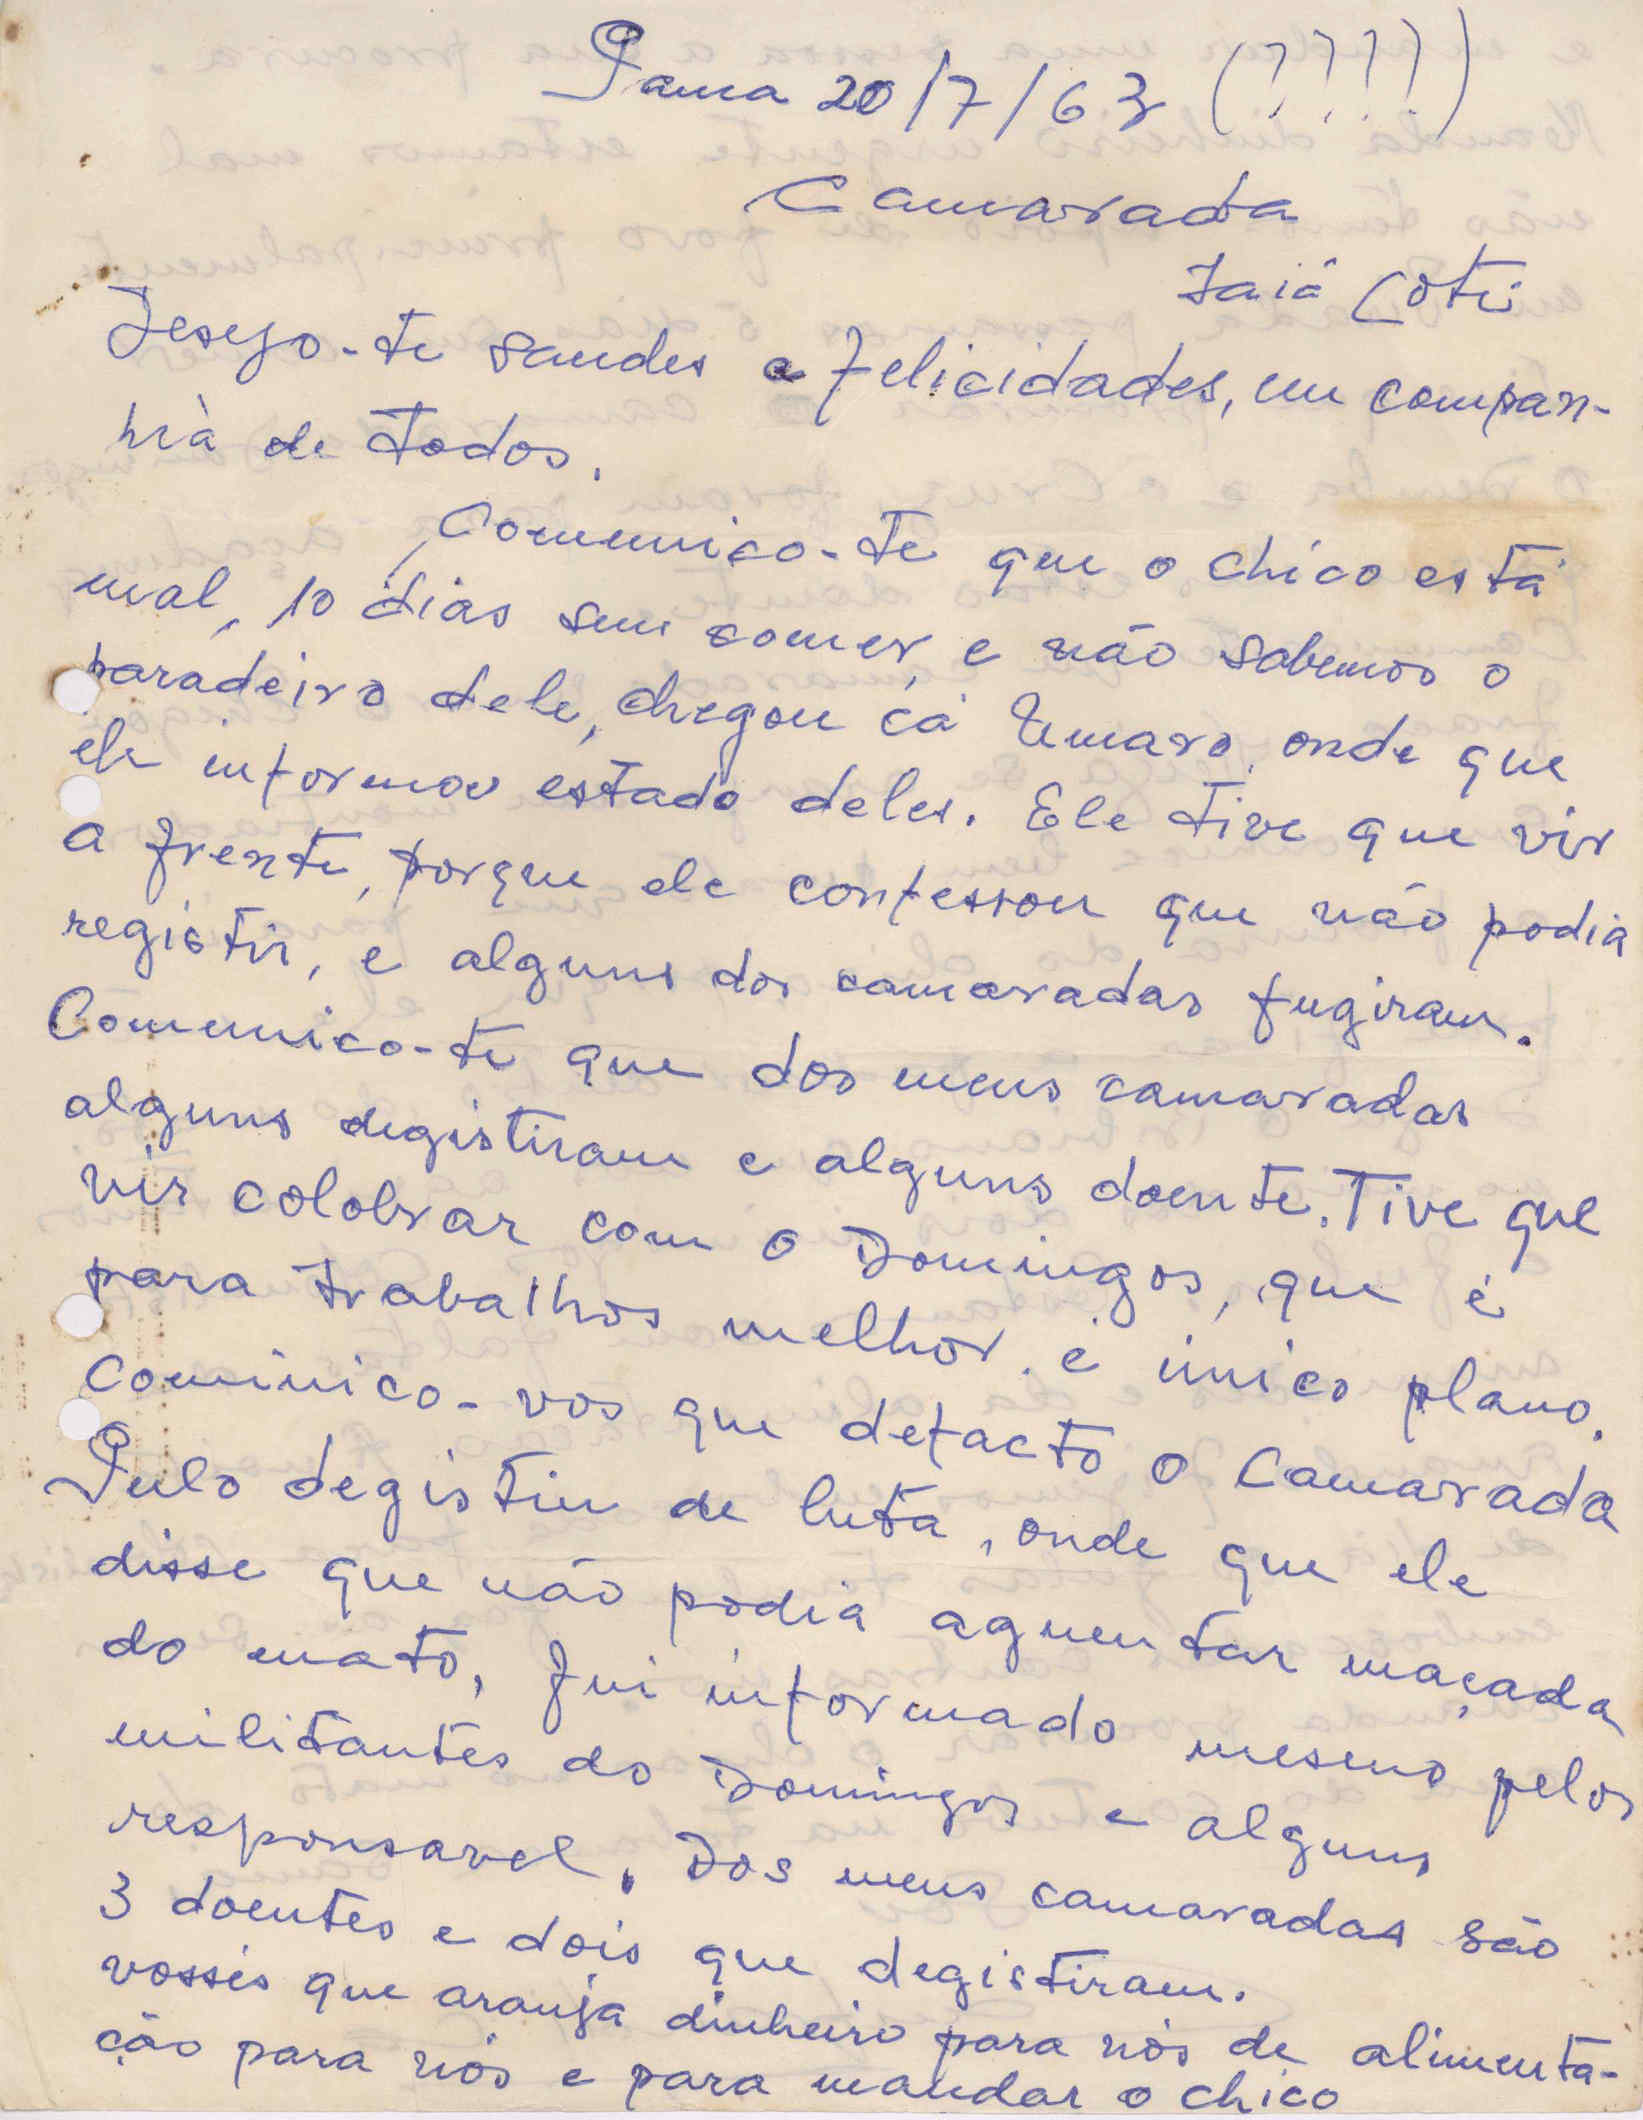 Sama 20/7/63 (????)
Camarada
Iaiá Coté
Desejo-te saudes e felicidades, em compan-
hià de todos.
Comunico-te que o Chico está
mal, 10 dias sem comer, e não sabemos o
paradeiro dele, chegou cá Umaro, onde que
ele informou estado deles. Ele tive que vir
a frente, porque ele confessou que não podia
registir, e alguns dos camaradas fugiram.
Comunico-te que dos meus camaradas
alguns degistiram e alguns doente. Tive que
vir colobrar com o Domingos, que é
para trabalhos melhor. é único plano.
Cominico-vos que defacto o Camarada
Pulo degistiu de luta, onde que ele
disse que não podia aguentar maçada
do mato, fui informado mesmo pelos
militantes do Domingos e alguns
responsavel. Dos meus camaradas são
3 doentes e dois que degistiram.
vossés que aranja dinheiro para nós de alimenta-
ção para nós e para mandar o Chico